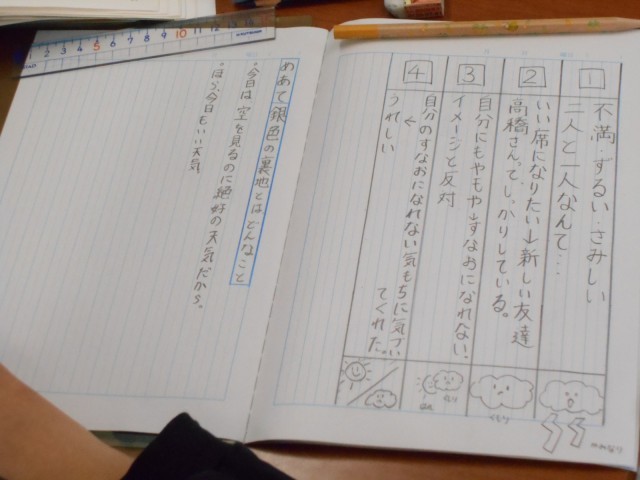 1
不満…ずるい…さみしい
二人と一人なんて…
2
いい席になりたい→新しい友達
高橋さんって、しっかりしている。
3
自分にもやもや→すなおになれない。
イメージと反対
4
自分のすなおになれない気もちに気づい
てくれた。
↓
うれしい
かみなり
くもり
くもり
はれ
めあて 銀色の裏地とはどんなこと
"今日は空を見るのに絶好の天気だから。
"ほら、今日もいい天気
1 2 3 4 5 6 7 8 9 10 11 12 13